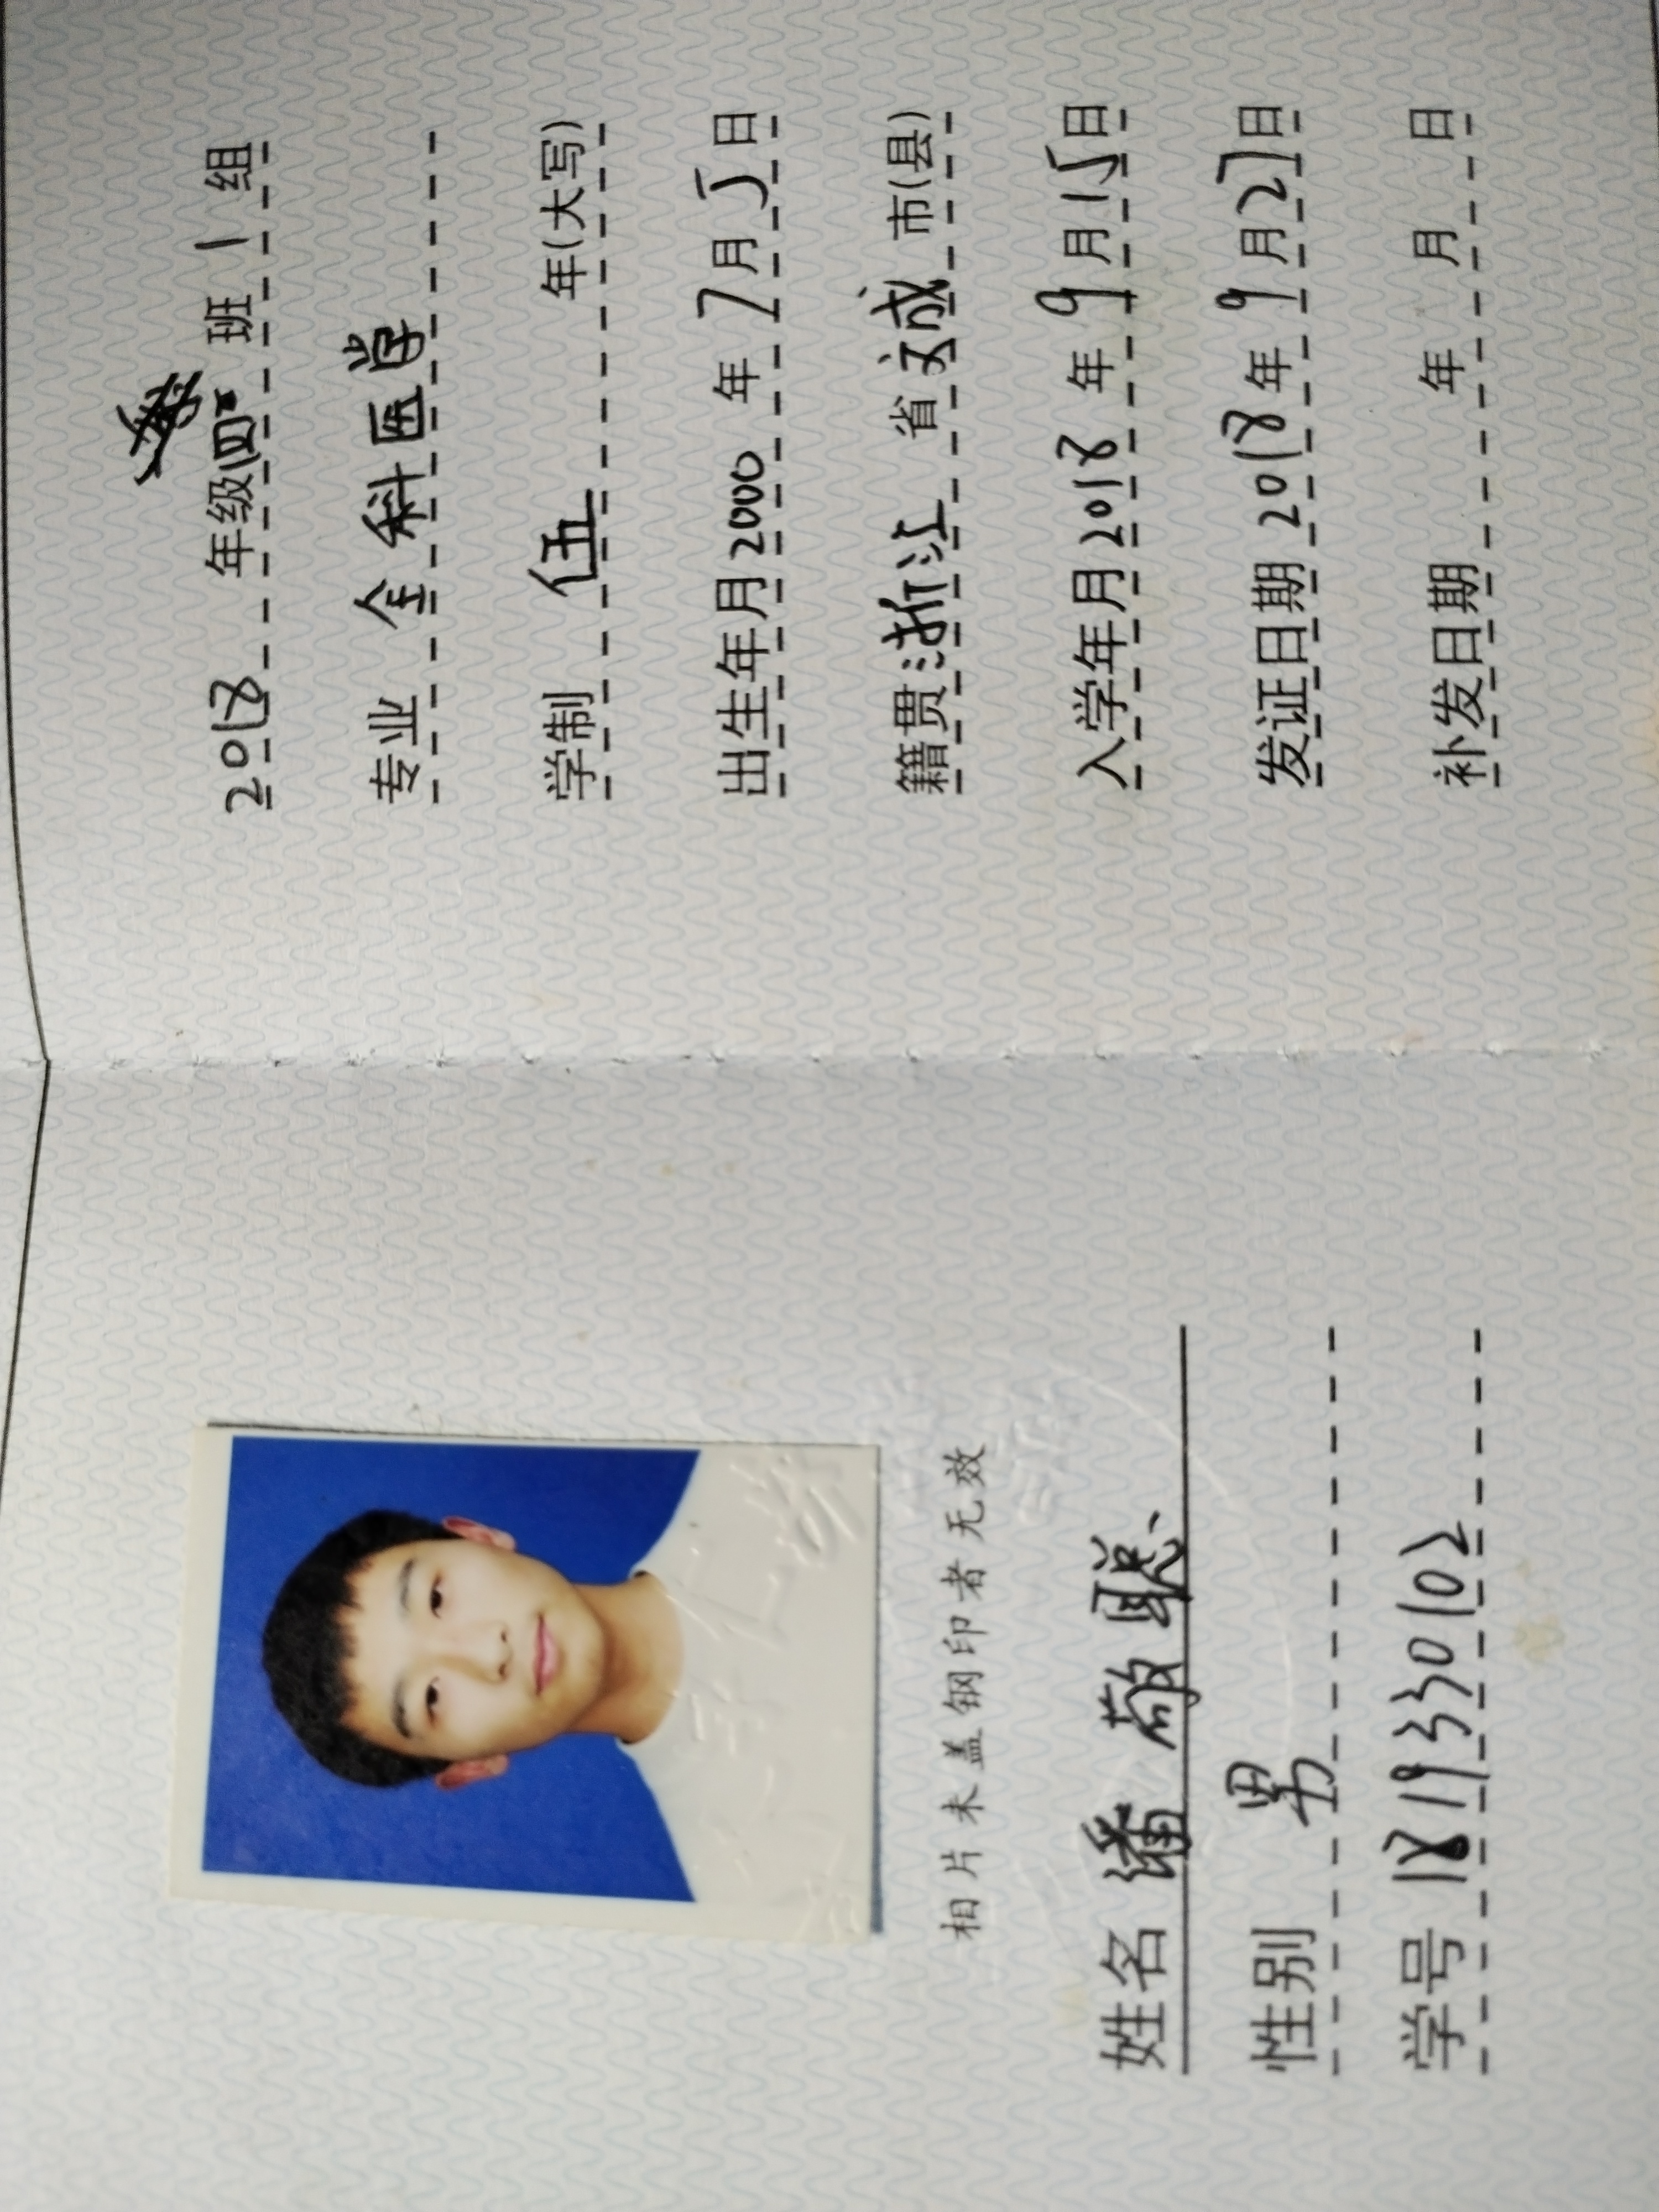 相片未盖钢印者无效
姓名 潘敬聪
性别 男
学号 1819330102
2018 年级 四 班 1 组
专业 全科医学
学制 伍 年(大写)
出生年月 2000 年 7 月 5 日
籍贯 浙江 省 文成 市(县)
入学年月 2018 年 9 月 15 日
发证日期 2018 年 9 月 27 日
补发日期 年 月 日